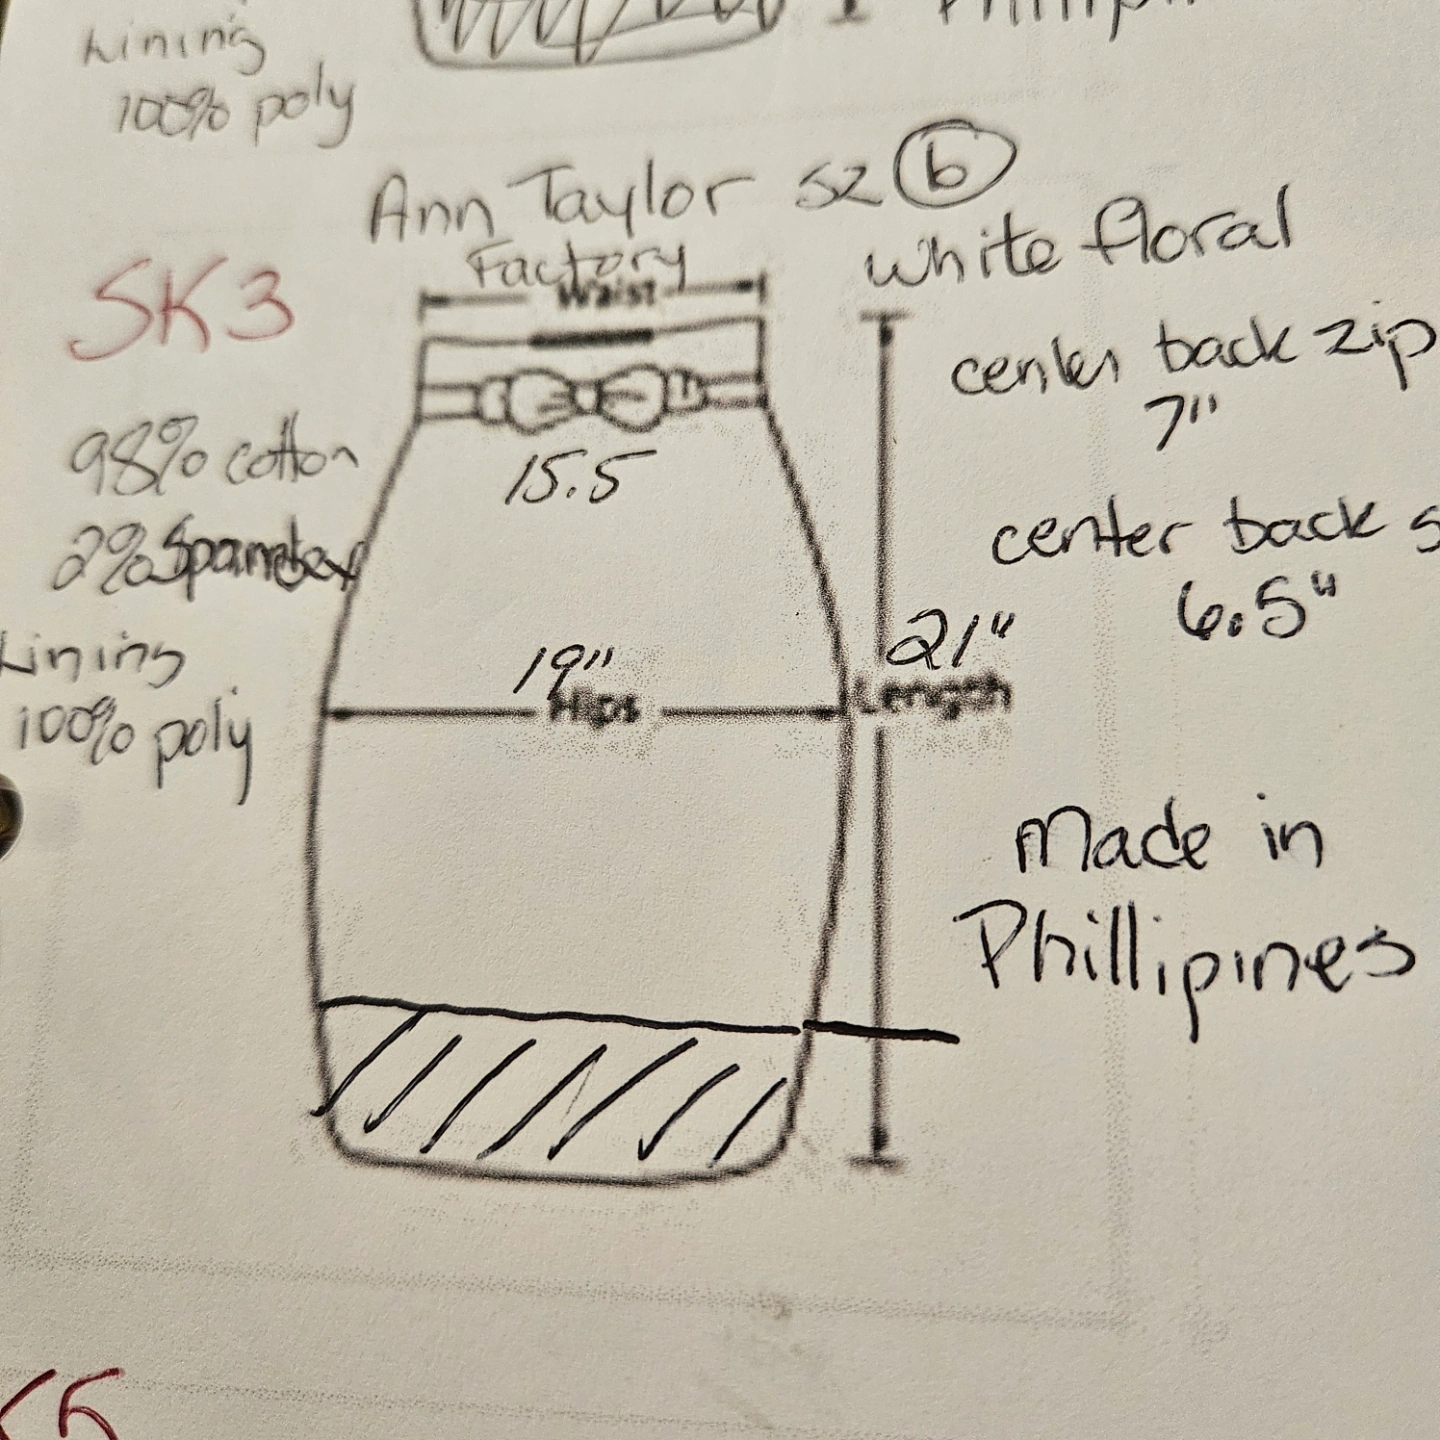 Lining
100% poly
Ann Taylor sz 6
Factory
white floral
SK3
Waist
center back zip
7"
98% cotton
15.5
2% Spandex
center back s
6.5"
Lining
100% poly
19"
Hips
21"
Length
Made in
Phillipines